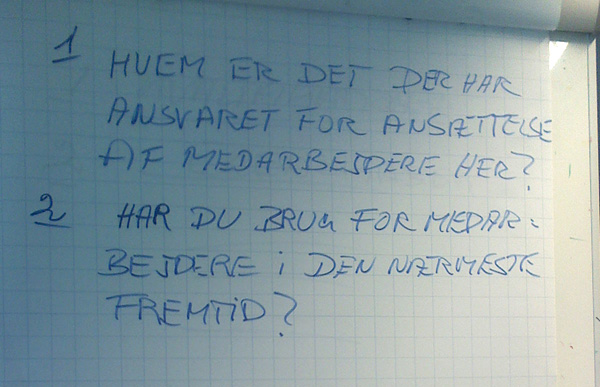 1 HVEM ER DET DER HAR
ANSVARET FOR ANSÆTTELSE
AF MEDARBEJDERE HER?
2 HAR DU BRUG FOR MEDAR-
BEJDERE i DEN NÆRMESTE
FREMTiD?